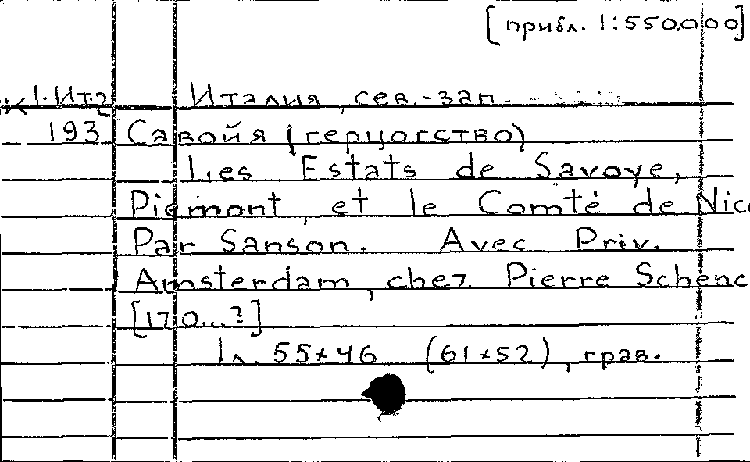 [прибл. 1:550.000]
К 1-Ит2 Италия, сев.-зап.
193 Савойя (герцогство)
Les Estats de Savoye,
Piemont, et le Comté de Nice
Par Sanson. Avec Priv.
Amsterdam, chez Pierre Schenc
[170...?]
1 л. 55×46 (61×52), грав.